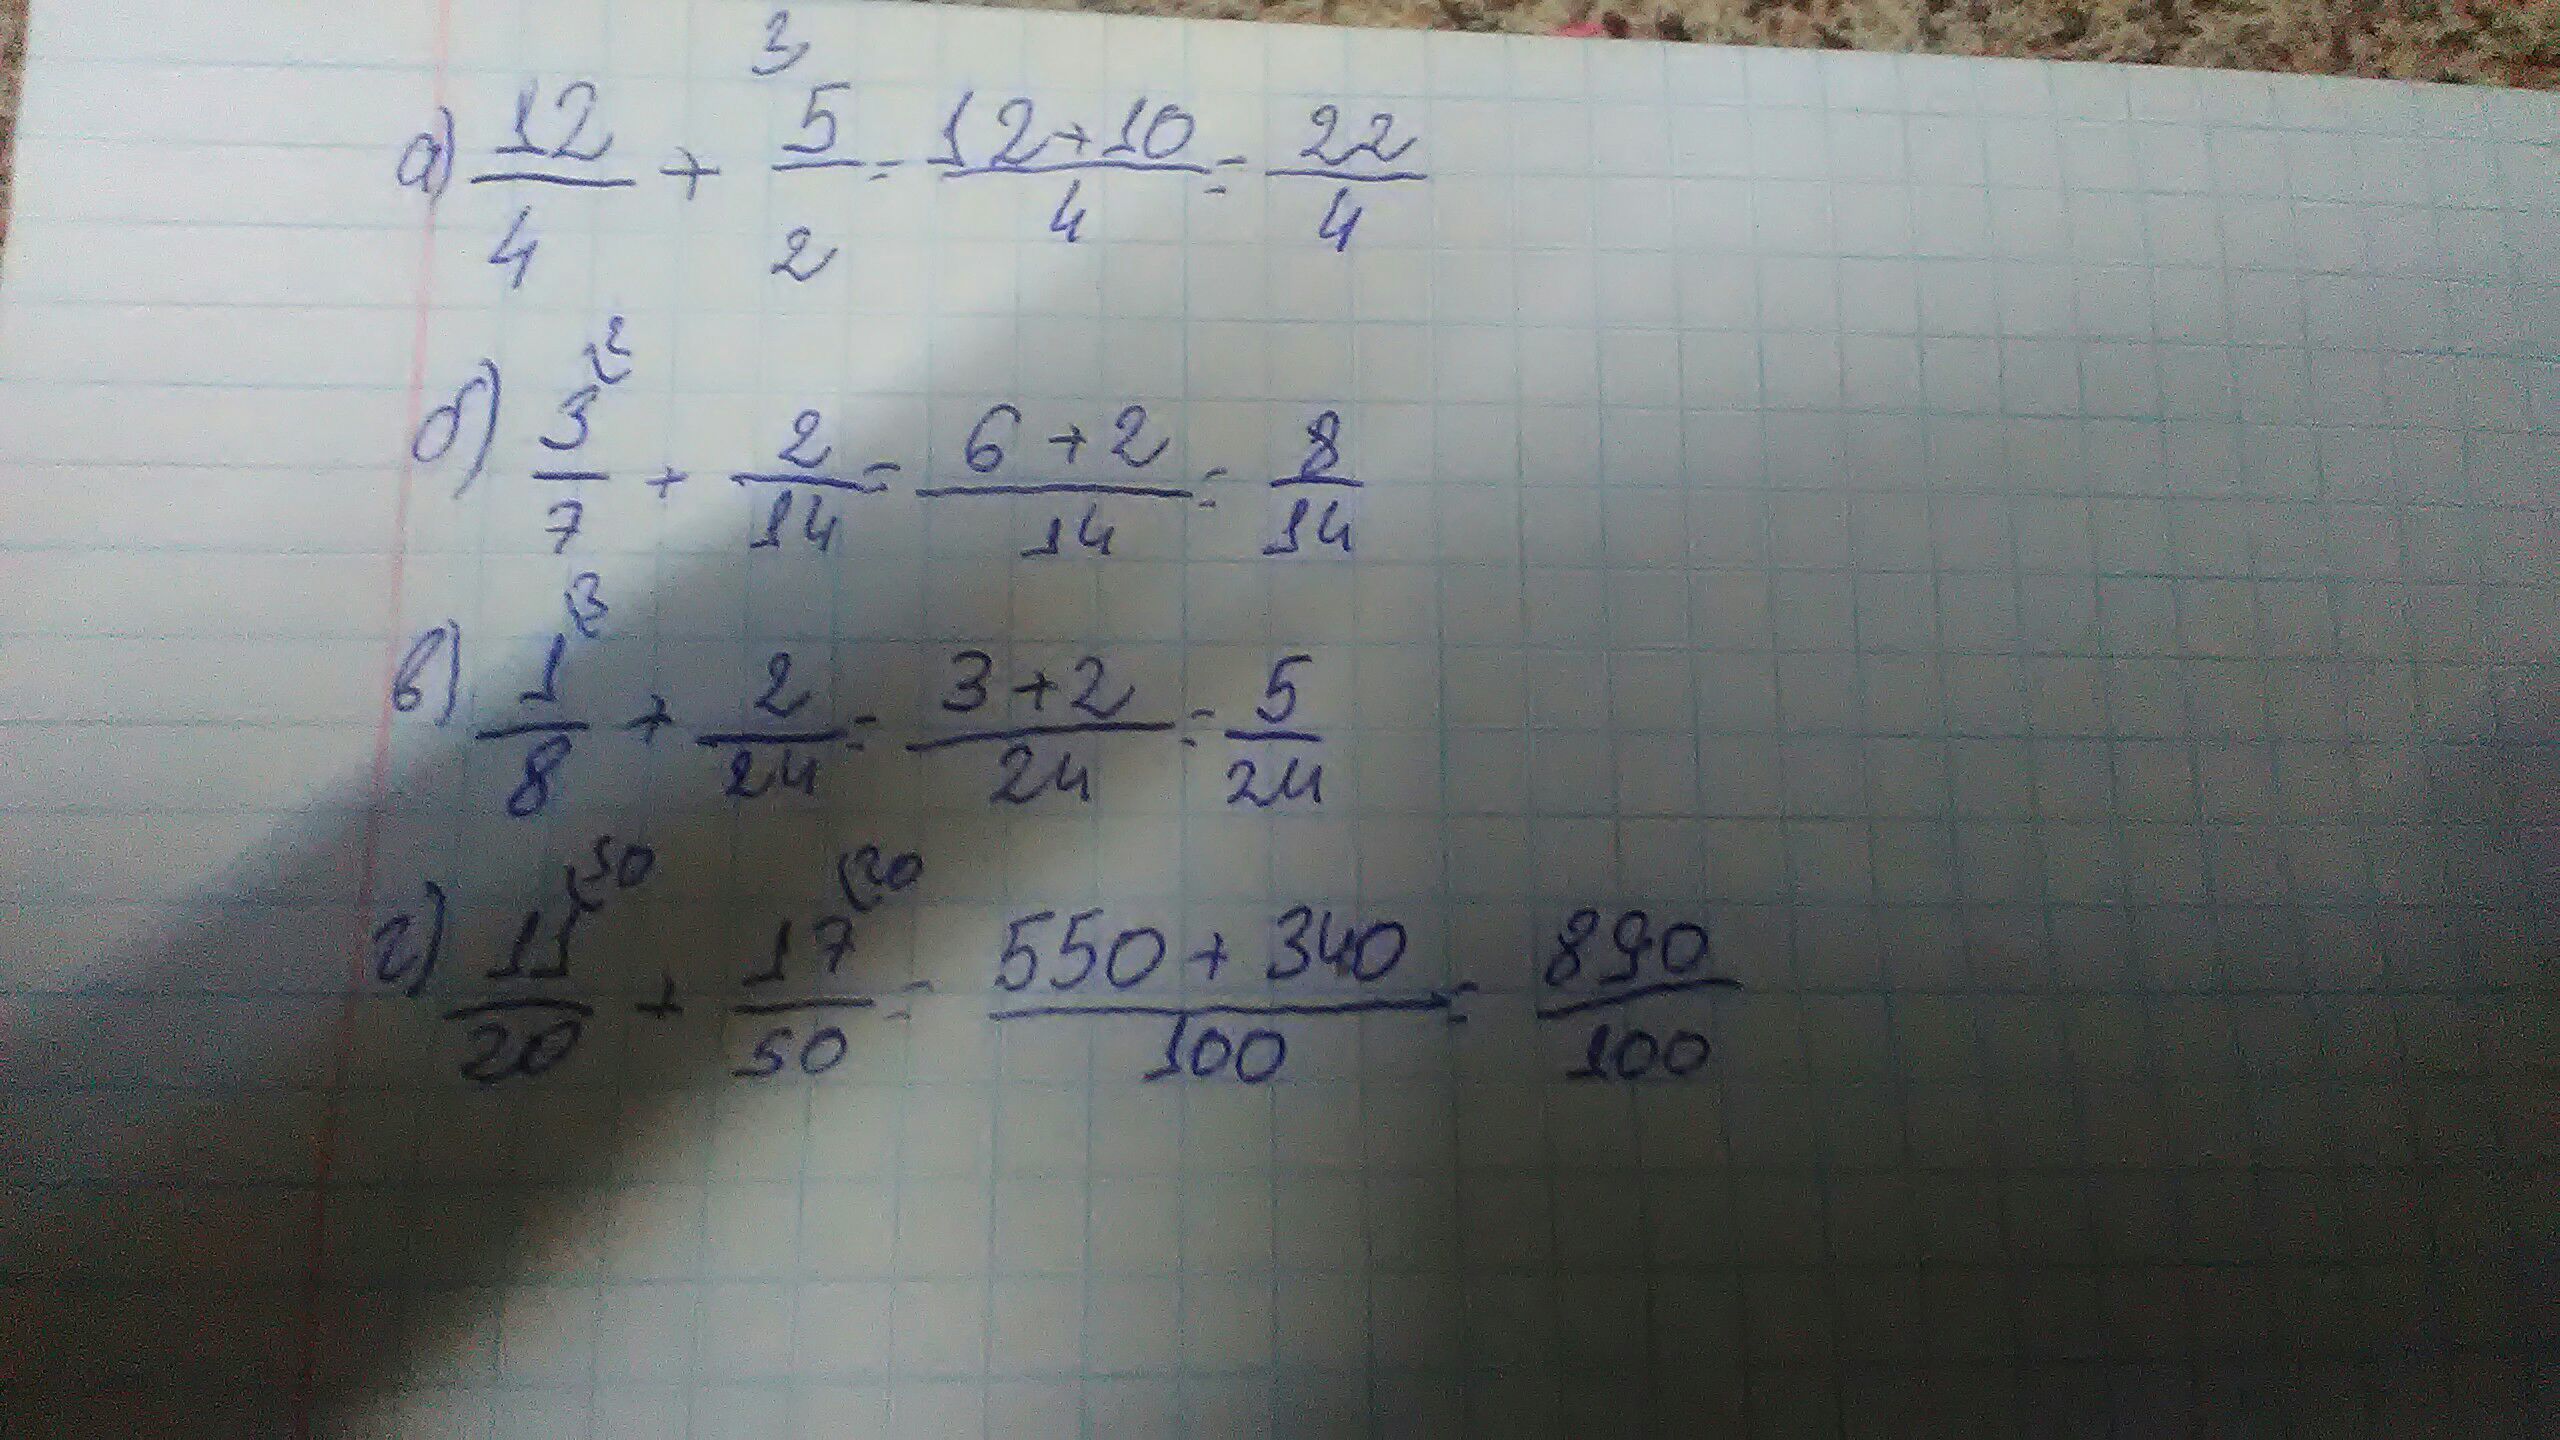 а) 12/4 + 3 5/2 = 12+10/4 = 22/4
б) 3^(2/7 + 2/14 = 6+2/14 = 8/14
в) 1^(3/8 + 2/24 = 3+2/24 = 5/24
г) 11^(50/20 + 17^(20/50 = 550+340/100 = 890/100